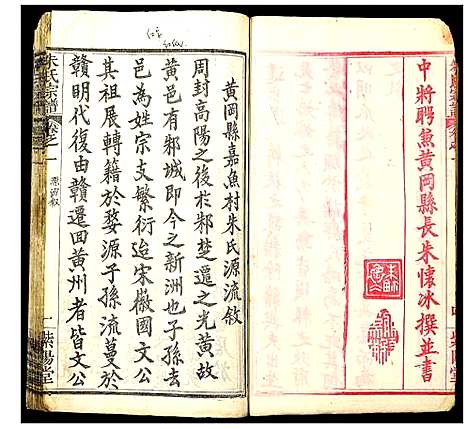 中將聘兼黃岡縣長朱懷冰撰並書
黃岡縣嘉魚村朱氏源流敘
周封高陽之後於邾楚遷之光黃故
黃邑有邾城即今之新洲也子孫去
邑為姓宗支繁衍迨宋徽國文公
其祖展轉籍於婺源子孫流蔓於
贛明代復由贛遷回黃州者皆文公
朱氏宗譜
卷之一
二
紫陽堂